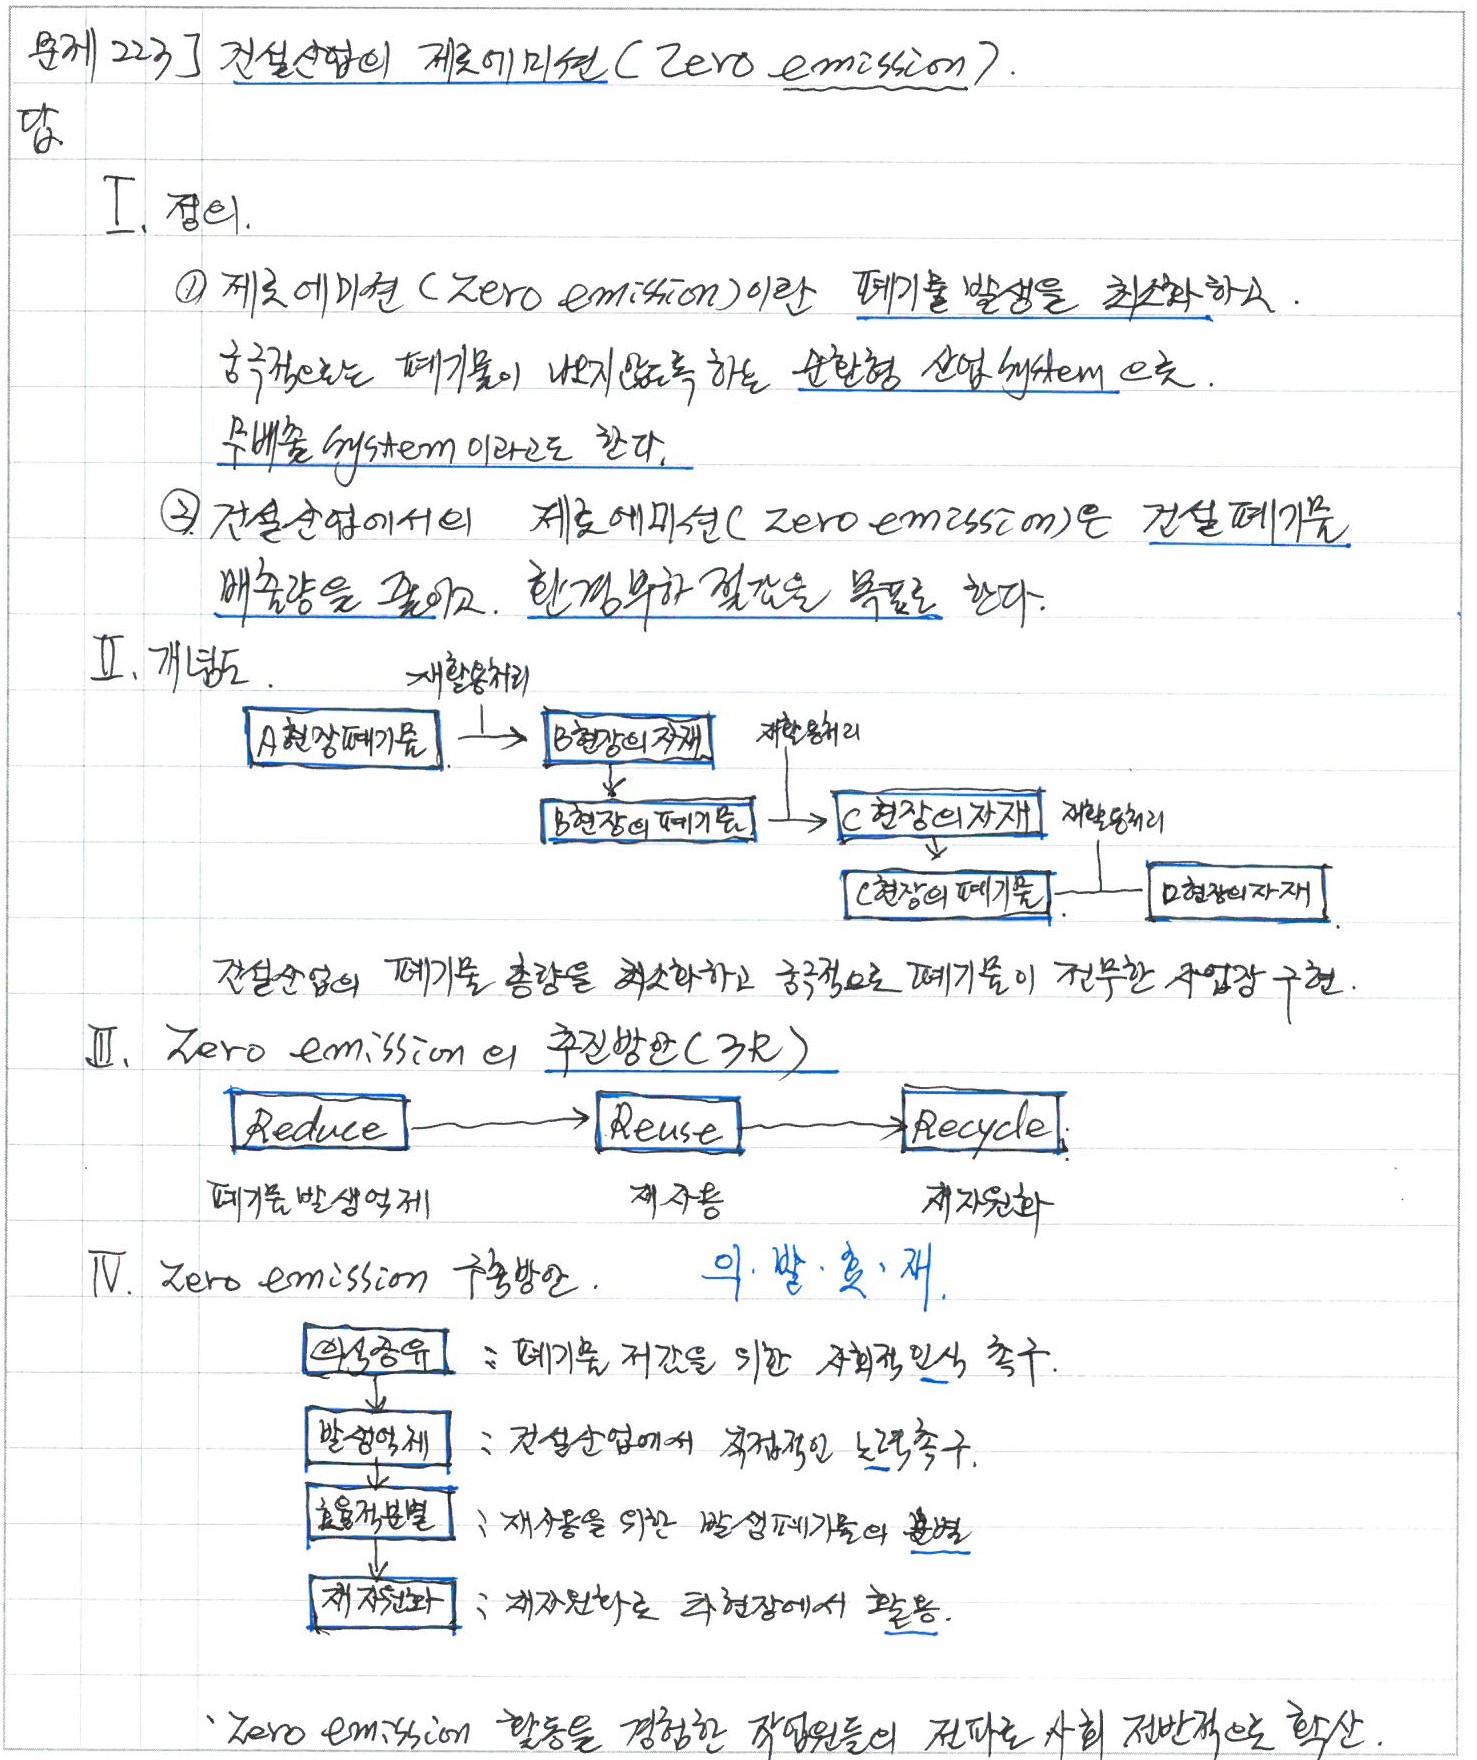 문제 223] 건설산업의 제로에미션(Zero emission).
답
I. 정의.
① 제로에미션(Zero emission)이란 폐기물 발생을 최소화하고.
궁극적으로는 폐기물이 나오지않도록 하는 순환형 산업system으로.
무배출system이라고도 한다.
② 건설산업에서의 제로에미션(Zero emission)은 건설폐기물
배출량을 줄이고. 환경부하 절감을 목표로 한다.
II. 개념도.
재활용처리
A현장폐기물 → B현장의 자재 재활용처리
B현장의 폐기물 → C현장의자재 재활용처리
C현장의 폐기물 D현장의자재
건설산업의 폐기물 총량을 최소화하고 궁극적으로 폐기물이 전무한 사업장 구현.
III. Zero emission의 추진방안(3R)
Reduce → Reuse → Recycle
폐기물발생억제 재사용 재자원화
IV. Zero emission 구축방안. 의·발·효·재.
의식공유 : 폐기물 저감을 위한 사회적인식 촉구.
발생억제 : 건설산업에서 직접적인 노력촉구.
효율적분별 : 재사용을 위한 발생폐기물의 분별
재자원화 : 재자원화로 타현장에서 활용.
Zero emission 활동을 경험한 작업원들의 전파로 사회 전반적으로 확산.